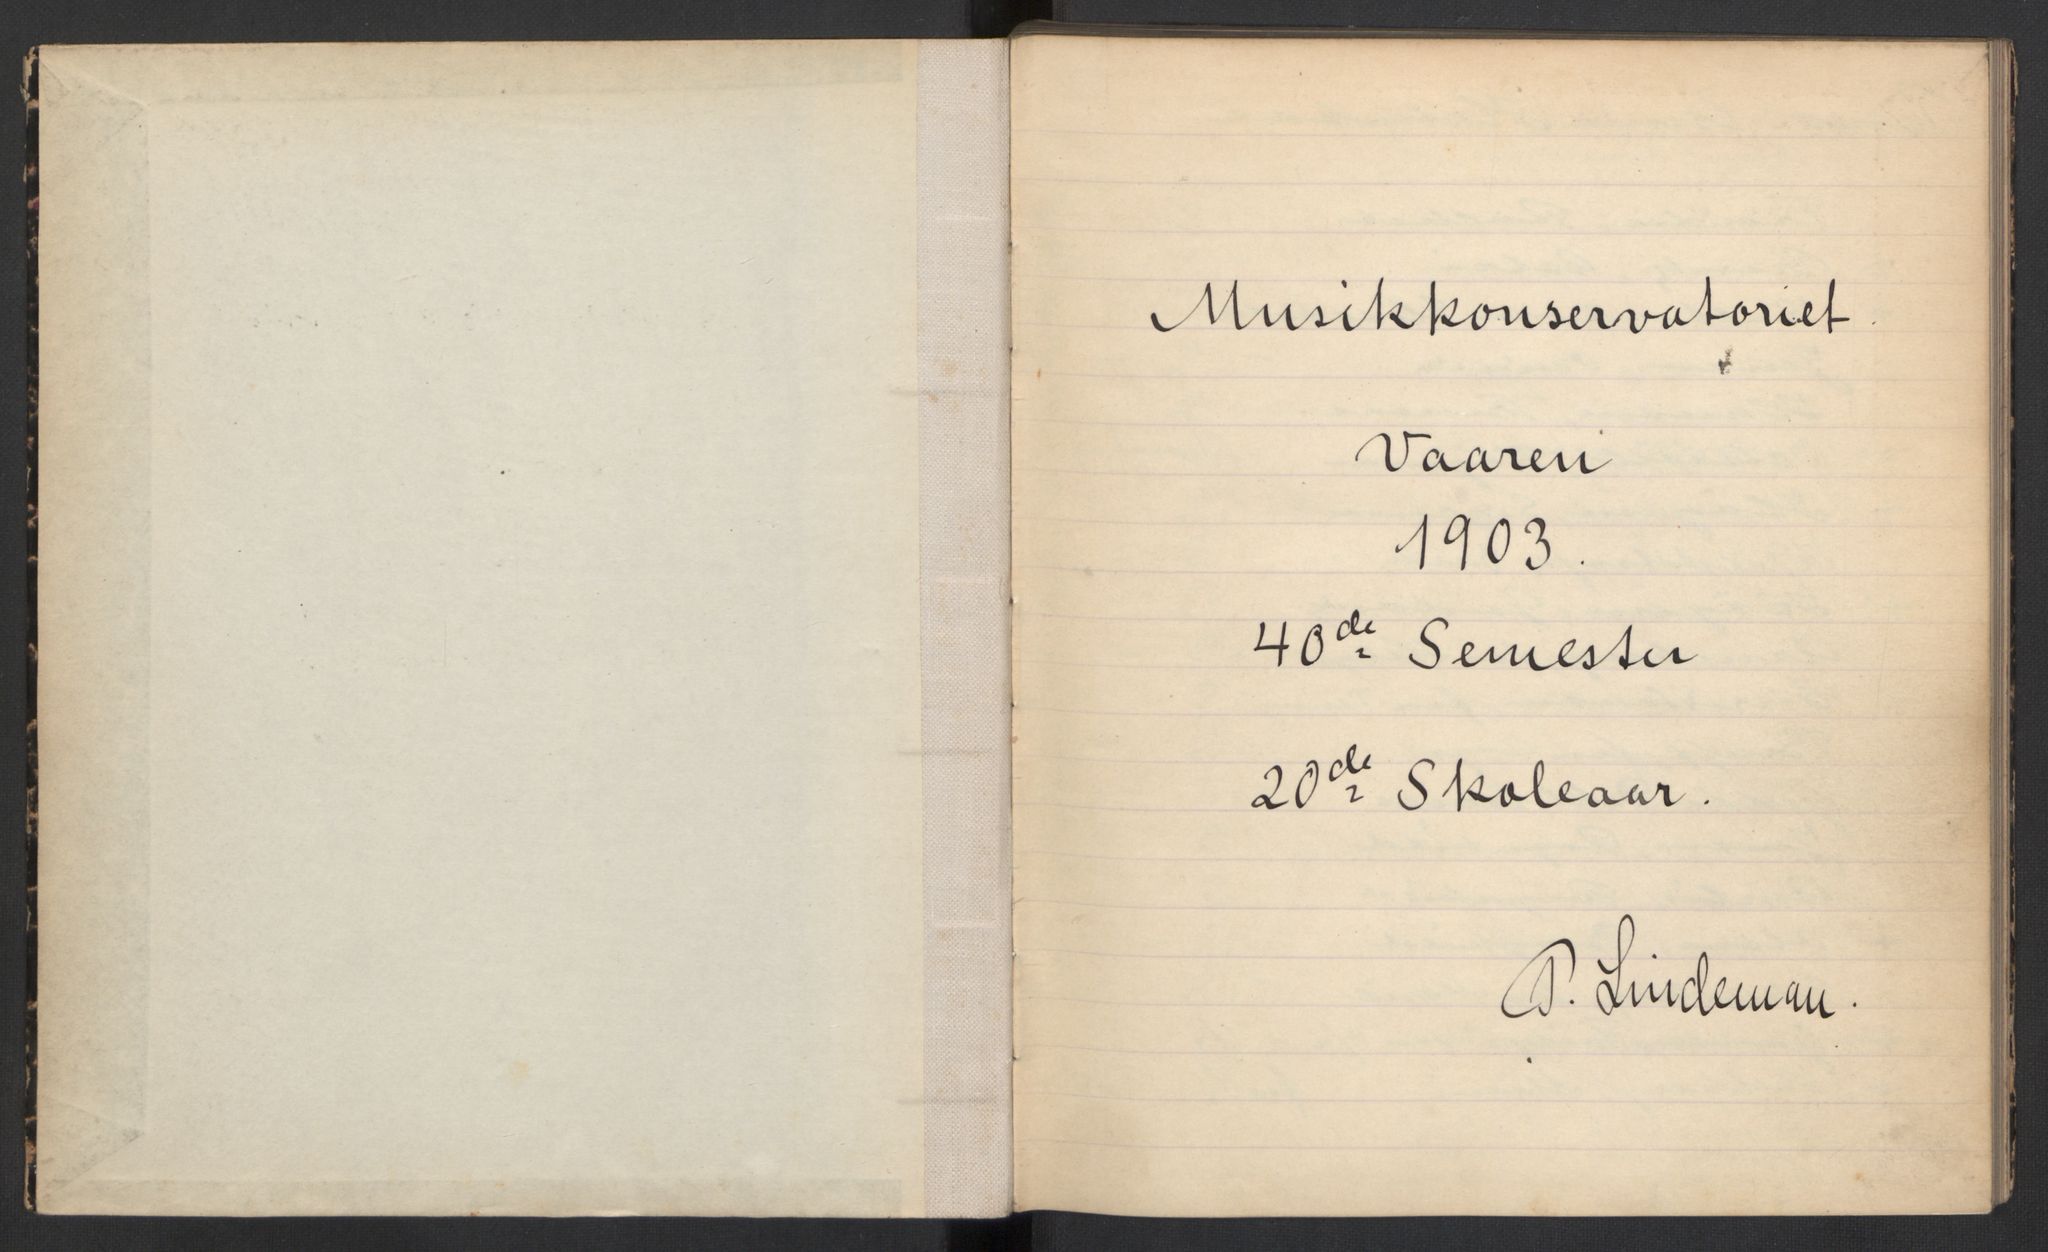 Musikkonservatoriet.
Vaaren
1903.
40de Semester
20de Skoleaar.
P. Lindeman.